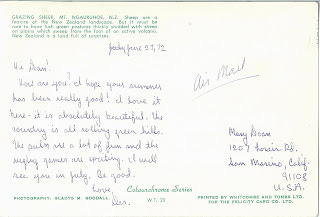 GRAZING SHEEP, MT. NGAURUHOE, N.Z. Sheep are a
feature of the New Zealand landscape. But it must be
rare to have lush green pastures thickly studded with sheep
on plains which sweep from the foot of an active volcano.
New Zealand is a land full of surprises.
June 27, 72
Hi Doan!
Air Mail
How are you? I hope your summer
has been really good! I love it
here - it is absolutely beautiful. the
country is all rolling green hills.
The pubs are a lot of fun and the
rugby games are exciting. I will
see you in july. Be good.
Love,
Mary Doan
1207 Rd.
San Marino, Calif.
91108
U.S.A.
Colourchrome Series
PHOTOGRAPHY: GLADYS M. GOODALL.
W.T. 23
PRINTED BY WHITCOMBE AND TOMBS LTD.
FOR THE FELICITY CARD CO. LTD.